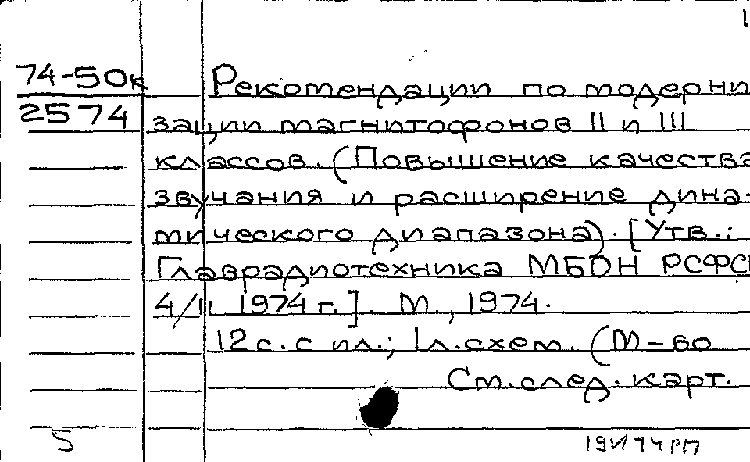 1
74-50к
2574
Рекомендации по модерни
зации магнитофонов II и III
классов. (Повышение качества
звучания и расширение дина-
мического диапазона). [Утв.:
Главрадиотехника МБОН РСФС
1974 г.]. М., 1974.
12 с. с ил.; 1 л. схем. (М-во
См. след. карт.
5